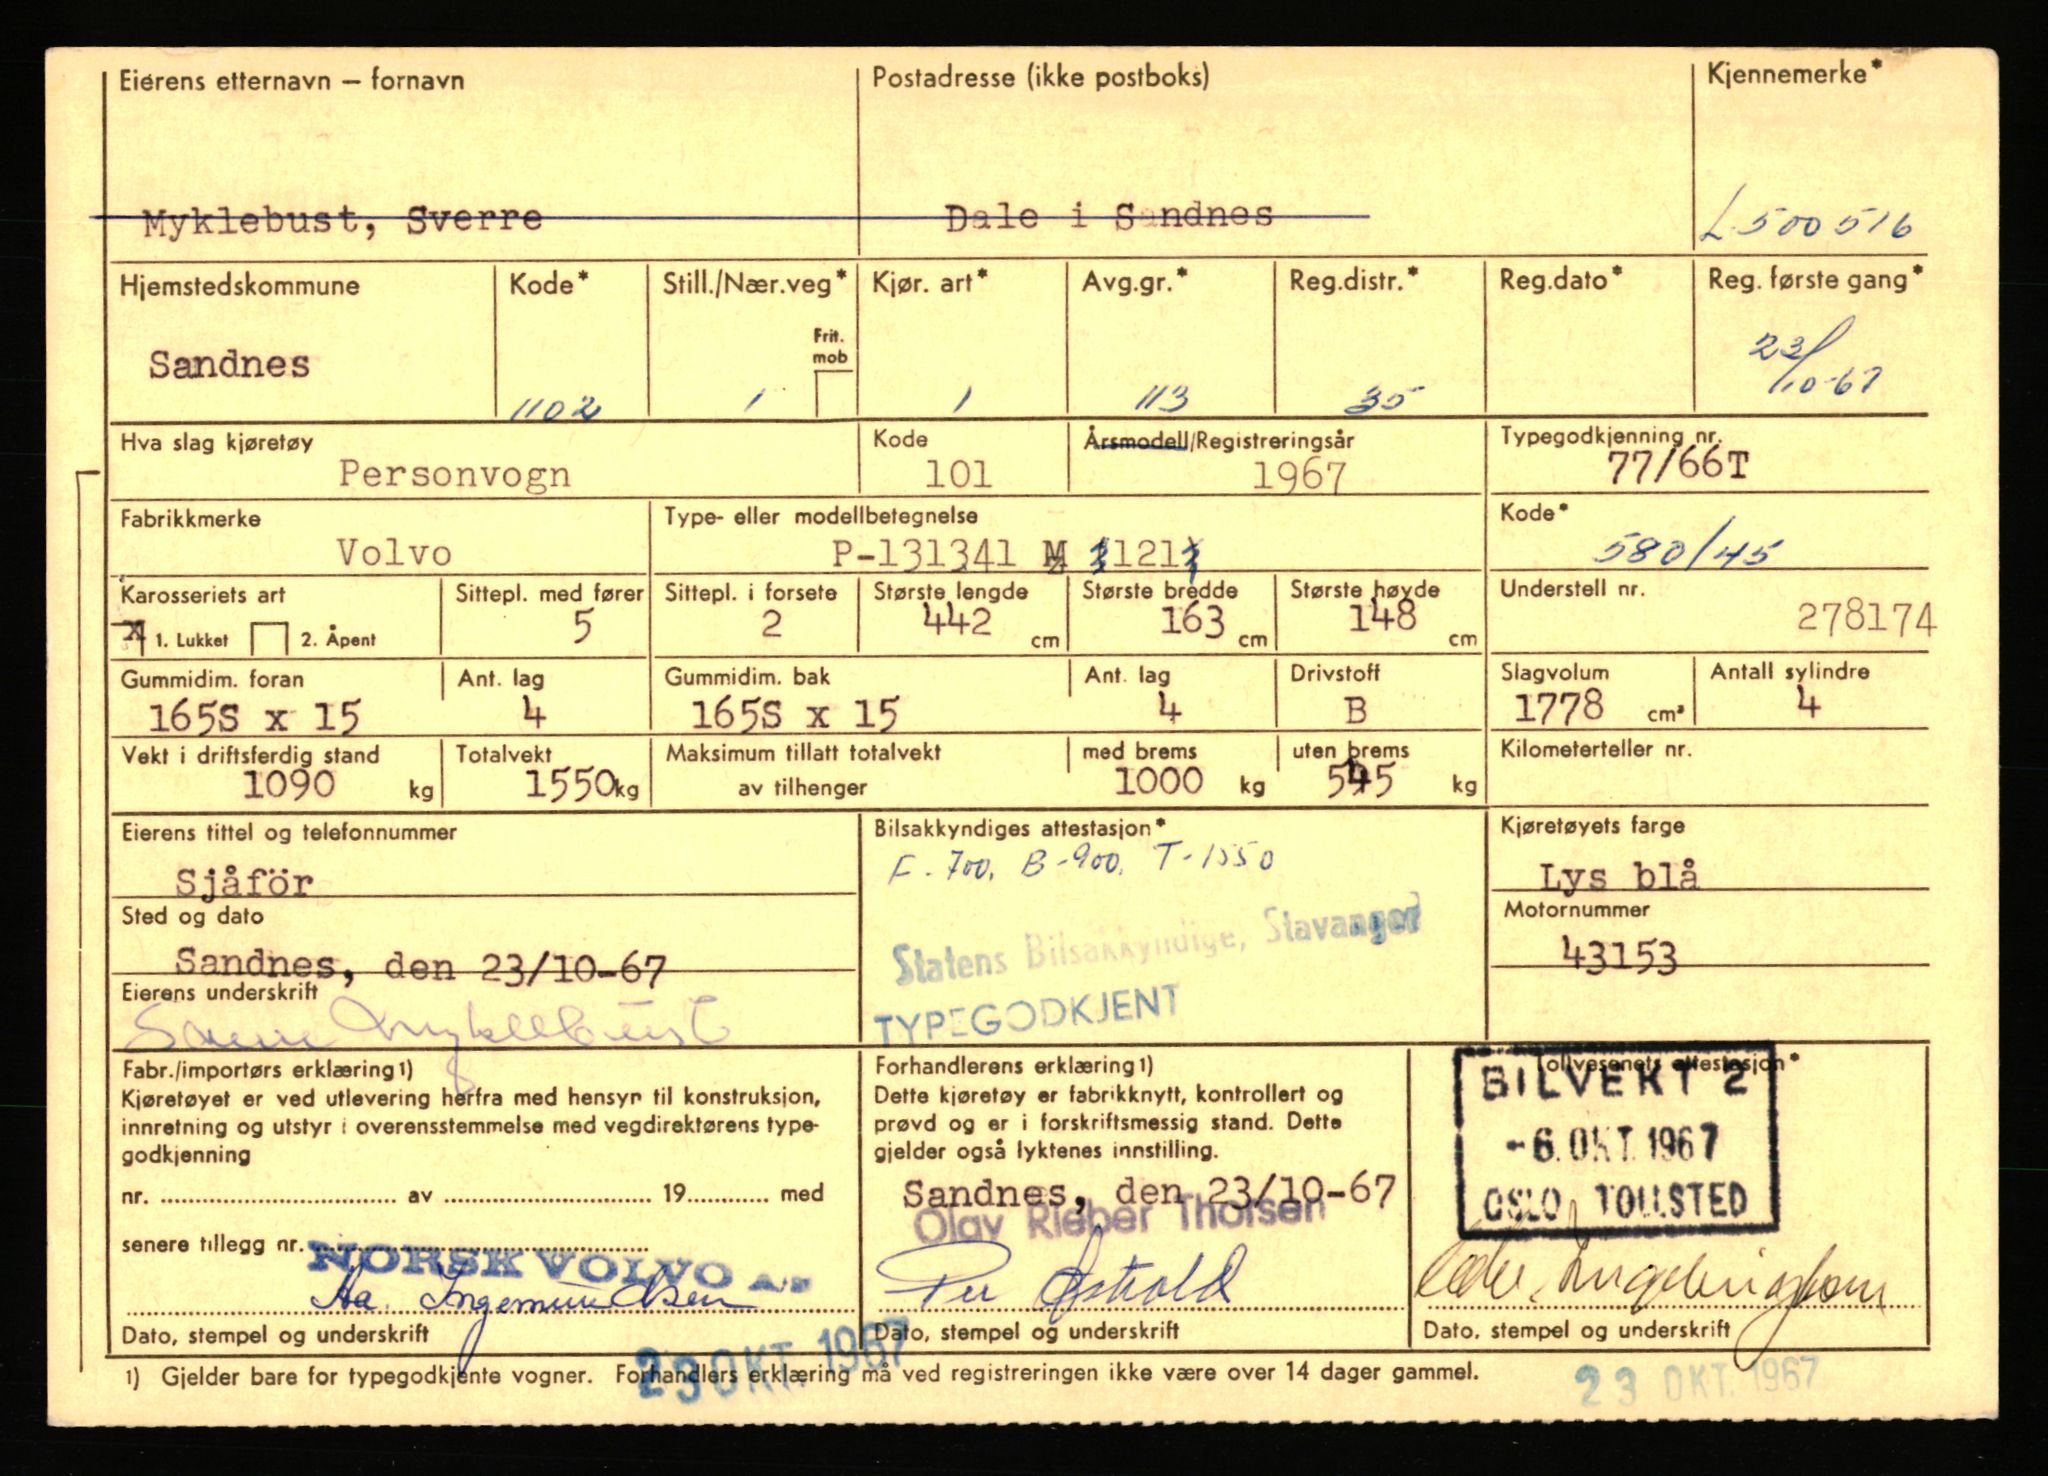 Eierens etternavn – fornavn
Postadresse (ikke postboks)
Kjennemerke*
Myklebust, Sverre
Dale i Sandnes
L-500516
Hjemstedskommune
Kode*
Still./Nær.veg*
Kjør. art*
Avg.gr.*
Reg.distr.*
Reg.dato*
Reg. første gang*
Frit. mob
Sandnes
1102
1
1
113
35
23/10-67
Hva slag kjøretøy
Kode
Årsmodell/Registreringsår
Typegodkjenning nr.
Personvogn
101
1967
77/66T
Fabrikkmerke
Type- eller modellbetegnelse
Kode*
Volvo
P-131341 M 121
580/45
Karosseriets art
Sittepl. med fører
Sittepl. i forsete
Største lengde
Største bredde
Største høyde
Understell nr.
x 1. Lukket
2. Åpent
5
2
442 cm
163 cm
148 cm
278174
Gummidim. foran
Ant. lag
Gummidim. bak
Ant. lag
Drivstoff
Slagvolum
Antall sylindre
165S x 15
4
165S x 15
4
B
1778 cm³
4
Vekt i driftsferdig stand
Totalvekt
Maksimum tillatt totalvekt
med brems
uten brems
Kilometerteller nr.
1090 kg
1550kg
av tilhenger
1000 kg
545 kg
Eierens tittel og telefonnummer
Bilsakkyndiges attestasjon*
Kjøretøyets farge
Sjåför
F-700, B-900, T-1550
Lys blå
Sted og dato
Motornummer
Sandnes, den 23/10-67
Statens Bilsakkyndige, Stavanger
43153
Eierens underskrift
TYPEGODKJENT
Sverre Myklebust
Fabr./importørs erklæring 1)
Kjøretøyet er ved utlevering herfra med hensyn til konstruksjon,
innretning og utstyr i overensstemmelse med vegdirektørens type-
godkjenning
nr. av 19 med
senere tillegg nr.
NORSK VOLVO A/S
Aa. Ingemundsen
Dato, stempel og underskrift
Forhandlerens erklæring 1)
Dette kjøretøy er fabrikknytt, kontrollert og
prøvd og er i forskriftsmessig stand. Dette
gjelder også lyktenes innstilling.
Sandnes, den 23/10-67
Olav Rieber Thorsen
Per Østvold
Dato, stempel og underskrift
Tollvesenets attestasjon*
BILVEKT 2
-6. OKT. 1967
OSLO TOLLSTED
Dato, stempel og underskrift
1) Gjelder bare for typegodkjente vogner. Forhandlers erklæring må ved registreringen ikke være over 14 dager gammel.
23 OKT. 1967
23 OKT. 1967